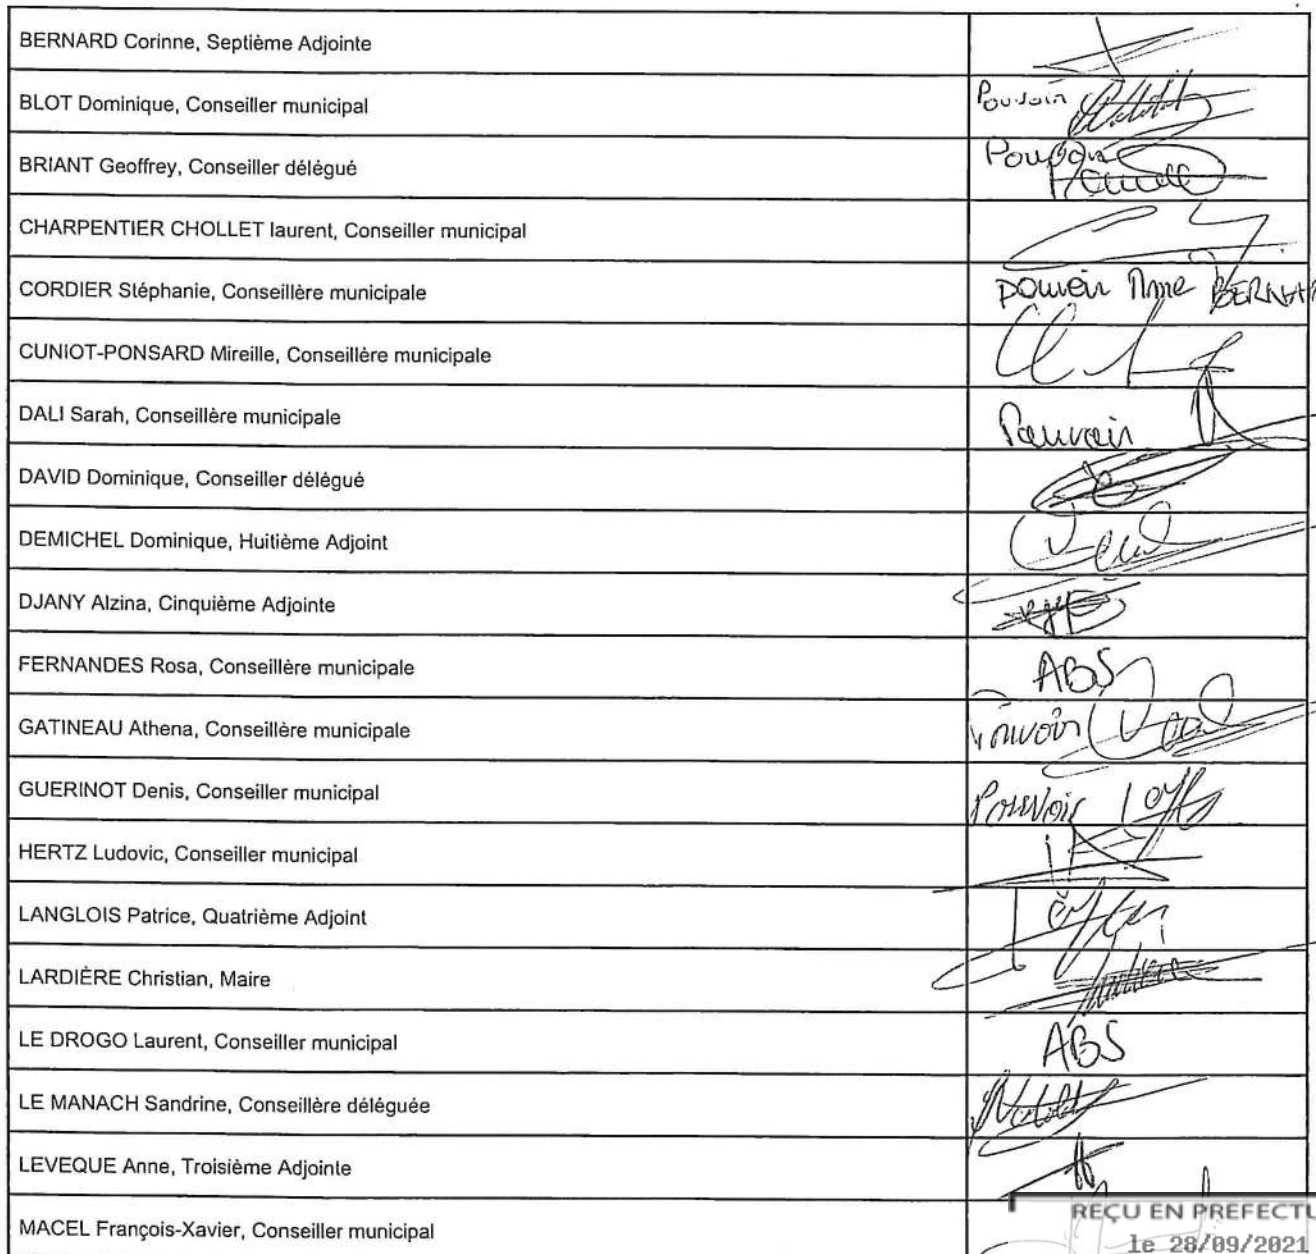 BERNARD Corinne, Septième Adjointe
BLOT Dominique, Conseiller municipal Pouvoir
BRIANT Geoffrey, Conseiller délégué Pouvoir
CHARPENTIER CHOLLET laurent, Conseiller municipal
CORDIER Stéphanie, Conseillère municipale pouvoir Mme BERNAR
CUNIOT-PONSARD Mireille, Conseillère municipale
DALI Sarah, Conseillère municipale Pouvoir
DAVID Dominique, Conseiller délégué
DEMICHEL Dominique, Huitième Adjoint
DJANY Alzina, Cinquième Adjointe
FERNANDES Rosa, Conseillère municipale ABS
GATINEAU Athena, Conseillère municipale Pouvoir
GUERINOT Denis, Conseiller municipal Pouvoir
HERTZ Ludovic, Conseiller municipal
LANGLOIS Patrice, Quatrième Adjoint
LARDIÈRE Christian, Maire
LE DROGO Laurent, Conseiller municipal ABS
LE MANACH Sandrine, Conseillère déléguée
LEVEQUE Anne, Troisième Adjointe
MACEL François-Xavier, Conseiller municipal
REÇU EN PREFECTU
le 28/09/2021